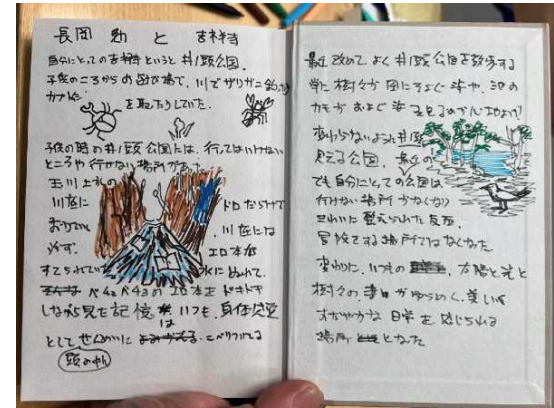 長岡 勉 と 吉祥寺
自分にとっての吉祥寺というと井ノ頭公園。
子供のころからの遊び場で、川でザリガニ釣ったり
カブトムシ を取ったりしていた。
子供の時の井ノ頭公園には、行ってはいけない
ところや行かない場所があった
玉川上水の
川底に ドロだらけで
おりていく 。川底には
必ず、 エロ本が
すてられていて 水にぬれて、
ベタベタのエロ本をドキドキ
しながら見た記憶はいつも、身体感覚
として こべりついてる
頭の中
最近改めてよく井ノ頭公園を散歩する
常に樹々が風にそよぐ姿や、池の
カモがおよぐ姿を見るのがここちよい
変わらないような井ノ頭
見える公園。最近の
でも自分にとっての公園は
行けない場所がなくなり
きれいに整えられた反面
冒険する場所ではなくなった
変わりに、いつもの 、太陽と光と
樹々の がゆらめく、美しく
すがやかな日常を感じられる
場所 となった